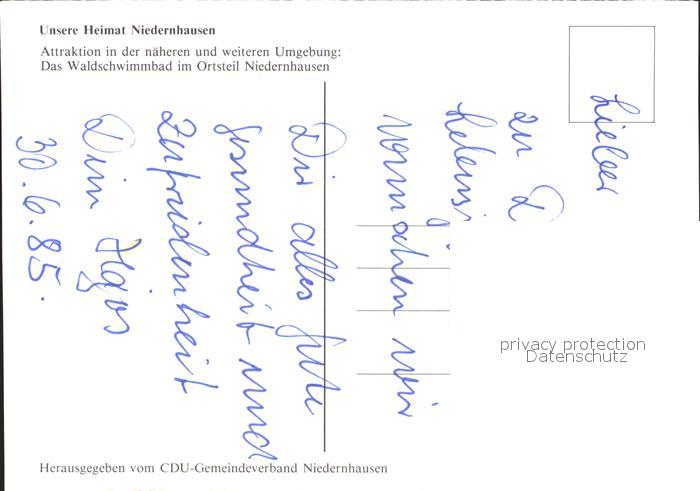 Unsere Heimat Niedernhausen
Attraktion in der näheren und weiteren Umgebung:
Das Waldschwimmbad im Ortsteil Niedernhausen
Lieber
zu
wünschen wir
Dir alles gute
gesundheit und
Zufridenheit
Dein
30.6.85.
privacy protection
Datenschutz
Herausgegeben vom CDU-Gemeindeverband Niedernhausen